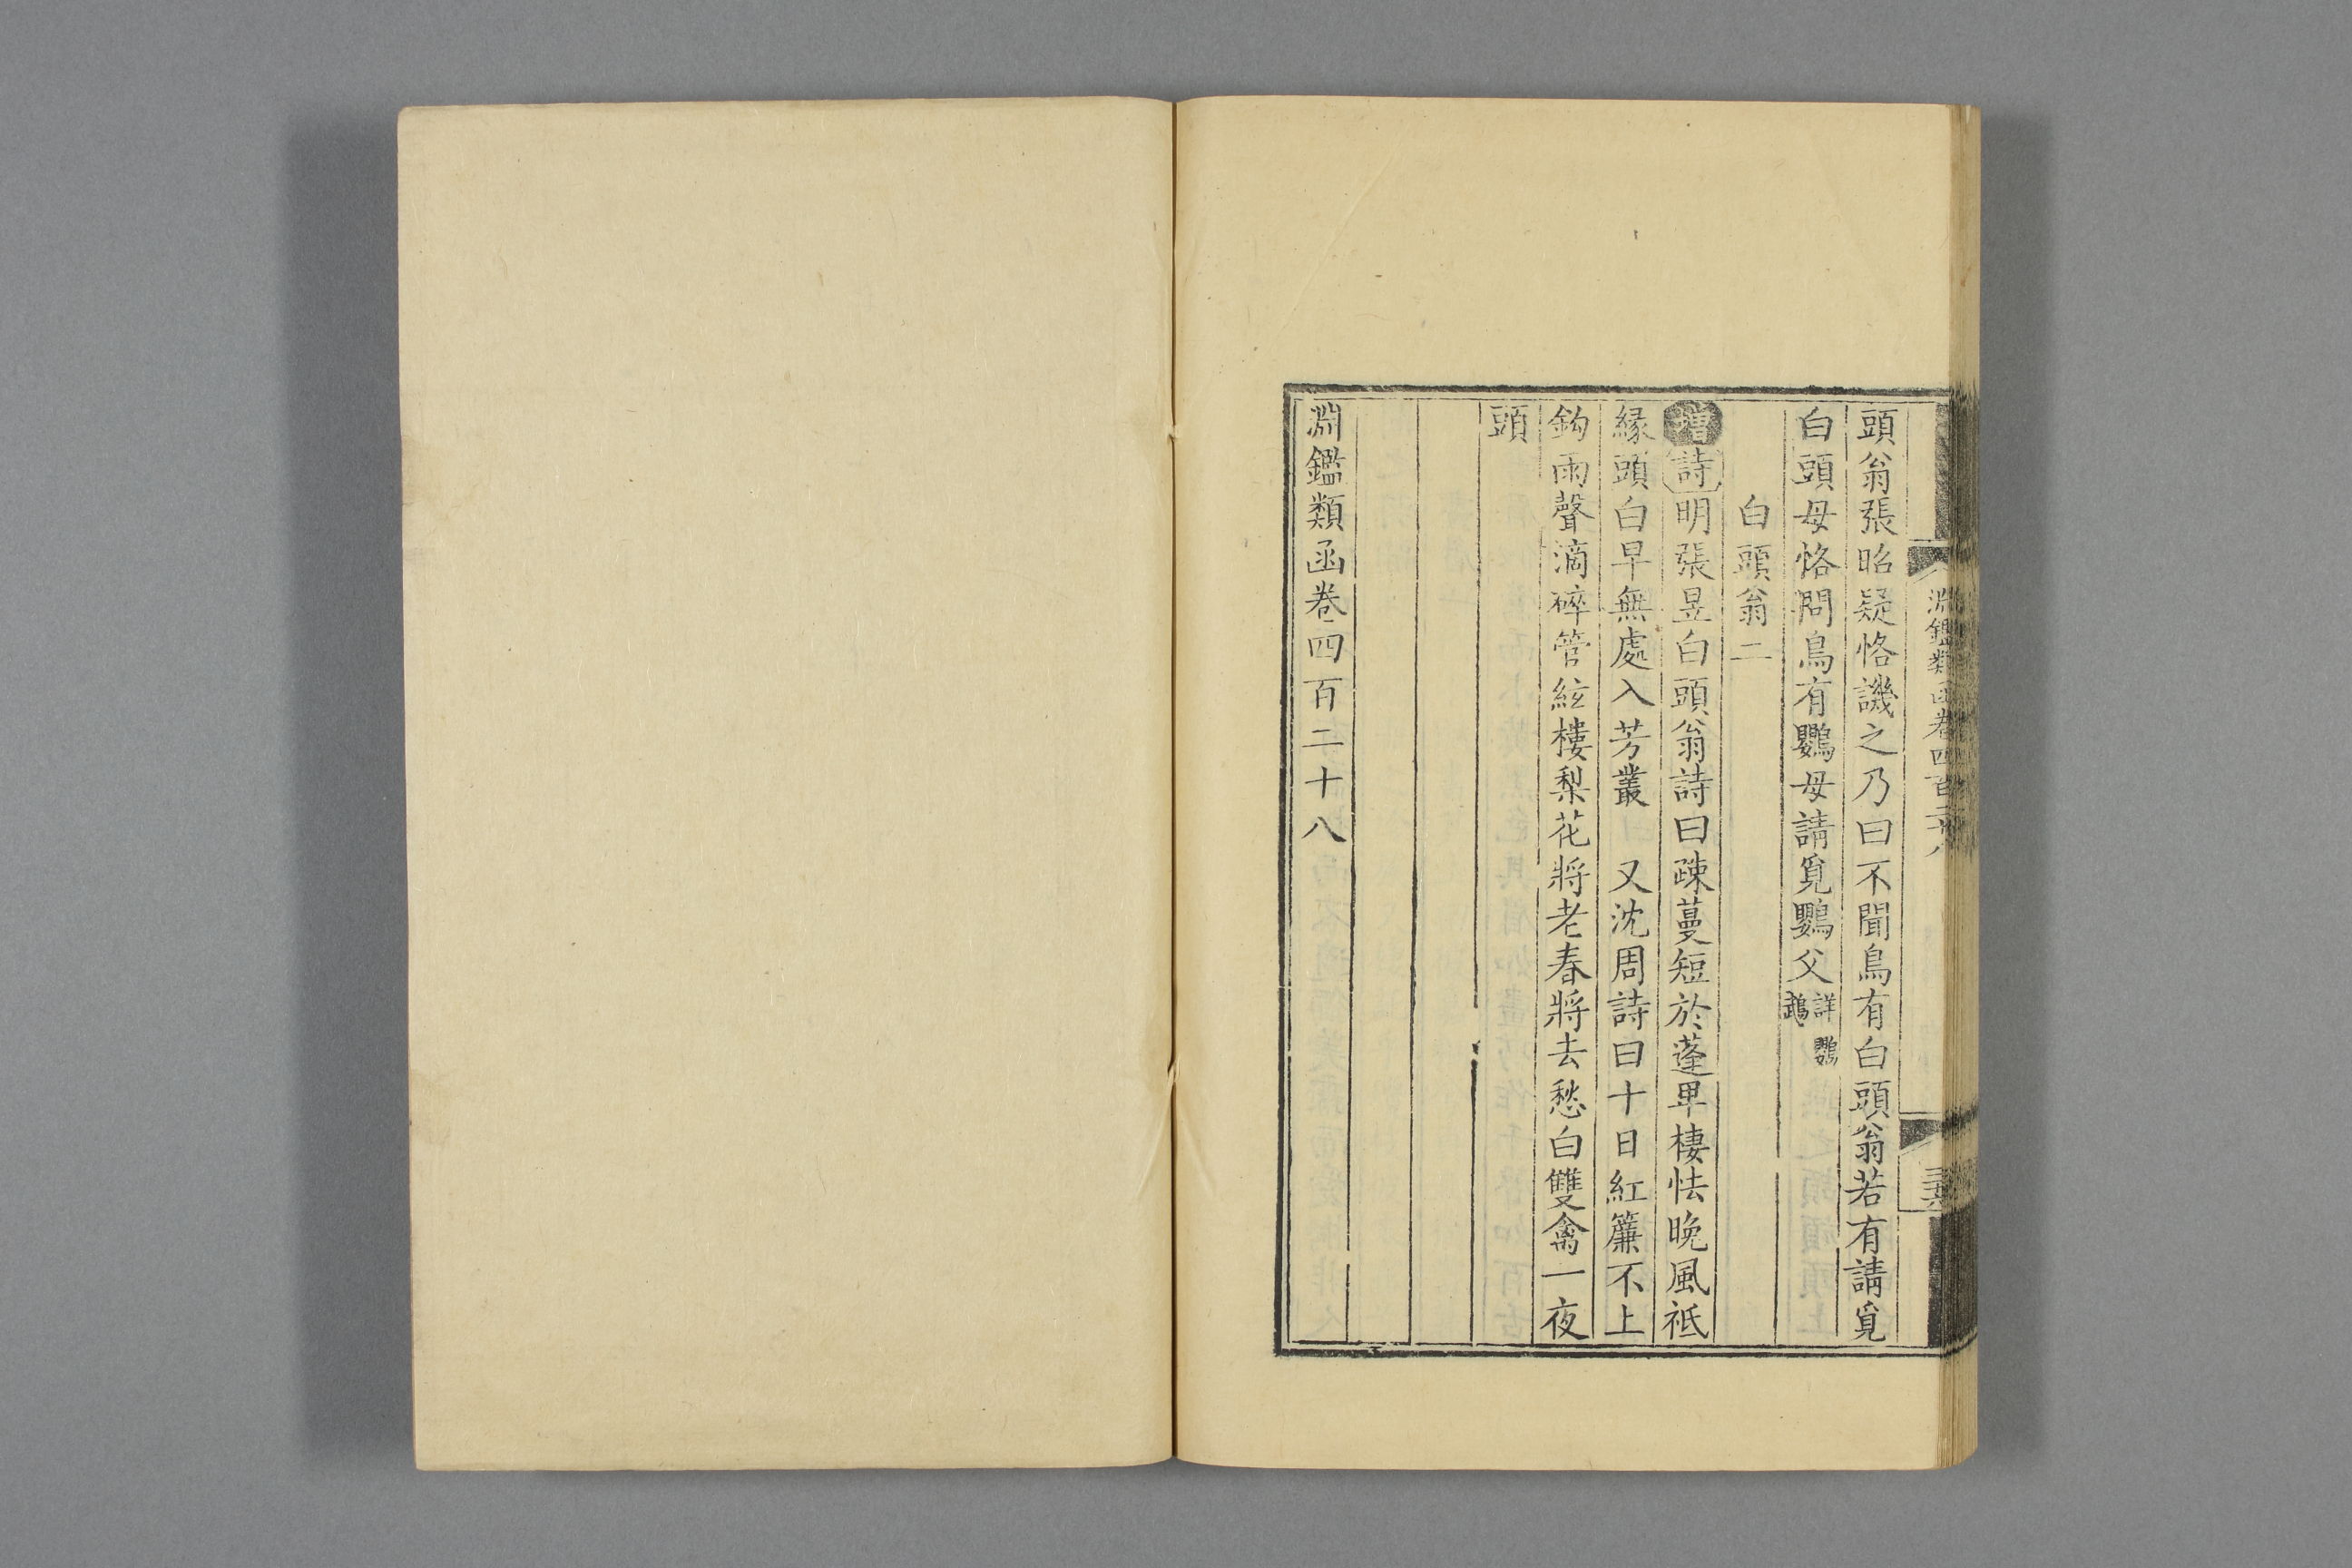 淵鑑類函卷四百二十八
三十六
頭翁張昭疑恪譏之乃曰不聞鳥有白頭翁若有請覓
白頭母恪問鳥有鸚母請覓鸚父詳鸚鵡
白頭翁二
增詩明張昱白頭翁詩曰疎蔓短於蓬卑棲怯晚風祗
緣頭白早無處入芳叢 又沈周詩曰十日紅簾不上
鈎雨聲滴碎管絃樓梨花將老春將去愁白雙禽一夜
頭
淵鑑類函卷四百二十八